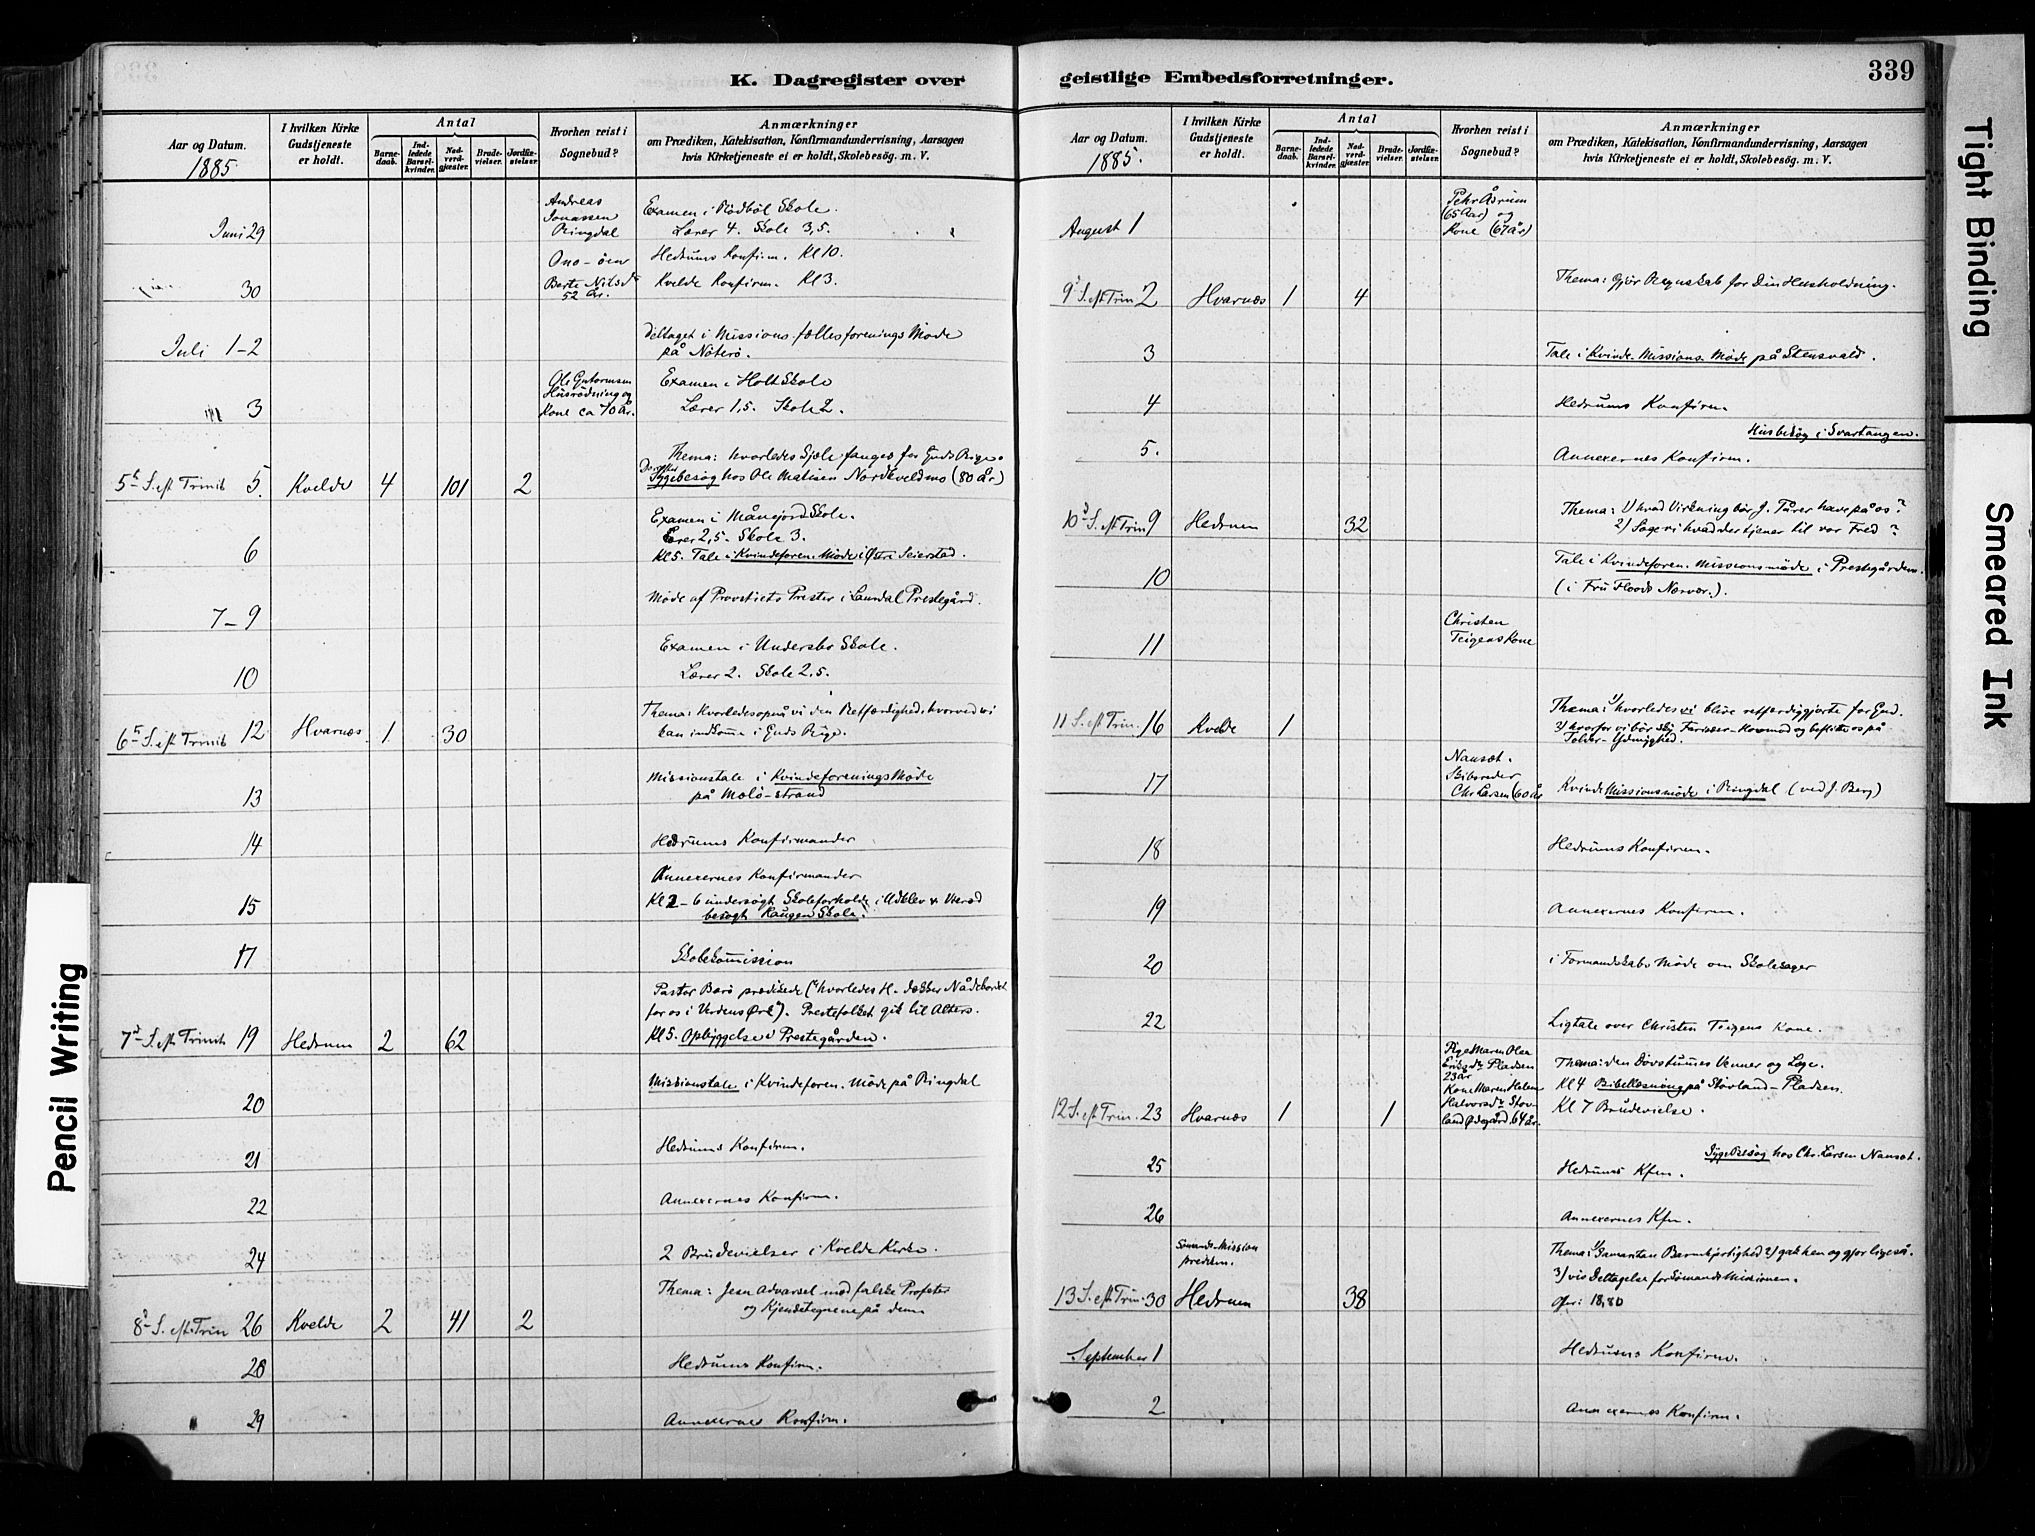 K. Dagregister over
Aar og Datum.
1885
I hvilken Kirke
Gudstjeneste
er holdt.
Antal
Barne-
daab.
Ind-
ledede
Barsel-
kvinder.
Nad-
verd-
gjæster.
Brude-
vielser.
Jordfæ-
stelser.
Hvorhen reist i
Sognebud?
Anmærkninger
om Prædiken, Katekisation, Konfirmandundervisning, Aarsagen
hvis Kirketjeneste ei er holdt, Skolebesøg. m. V.
Juni 29
Andreas
Jonassen
Ringdal
Examen i Rödböl Skole.
Lærer 4. Skole 3,5.
30
Berte Nilsdr
52 År.
Hedrums Konfirm. Kl 10.
Kvelde Konfirm. Kl 3.
Juli 1-2
Deltaget i Missions-fællesforenings Møde
på Nöterö.
3
Ole Guttormsen
Husrödning og
Kone ca 70 År.
Examen i Holt Skole
Lærer 1,5. Skole 2.
5te S. eft Trinit 5. Kvelde 4 101 2
Thema: hvorledes Sjæle fanges for Guds Rige.
Sygebesøg hos Ole Matisen Nordkveldmo (80 år)
6
Examen i Månejord Skole.
Lærer 2,5. Skole 3.
Kl 5. Tale i Kvindeforen. Møde i Østre Seierstad.
7-9
Møde af Provstiets Prester i Laurdal Prestegård.
10
Examen i Undersbo Skole.
Lærer 2. Skole 2,5.
6te S. eft Trinit 12 Hvarnæs 1 30
Thema: Hvorledes opnå vi den Retfærdighed, hvorved vi
kan indkomme i Guds Rige.
13
Missionstale i Kvindeforenings Møde
på Mælö-strand
14
Hedrums Konfirmander
15
Annexernes Konfirmander
Kl 2-6 undersøgt Skoleforholde i Odklev &
besøgt Haugen Skole.
17
Skolekommission
7de S. eft Trinit 19 Hedrum 2 62
Pastor Barö prædikede ("hvorledes H. dækker Nådebordet
for os i Verdens Ørk"). Prestefolket gik til Alters.
Kl 5. Opbyggelse i Prestegården.
20
Missionstale i Kvindeforen. Møde på Ringdal
21
Hedrums Konfirm.
22
Annexernes Konfirm.
24
2 Brudevielser i Kvelde Kirke.
8de S. eft. Trin 26 Kvelde 2 41 2
Thema: Jesu Advarsel mod falske Profeter
og Kjendetegnene på dem
28
Hedrums Konfirm.
29
Annexernes Konfirm.
geistlige Embedsforretninger.
339
Aar og Datum.
1885.
I hvilken Kirke
Gudstjeneste
er holdt.
Antal
Barne-
daab.
Ind-
ledede
Barsel-
kvinder.
Nad-
verd-
gjæster.
Brude-
vielser.
Jordfæ-
stelser.
Hvorhen reist i
Sognebud?
Anmærkninger
om Prædiken, Katekisation, Konfirmandundervisning, Aarsagen
hvis Kirketjeneste ei er holdt, Skolebesøg. m. V.
August 1
Pehr Åsrum
(65 Aar) og
Kone (67 år)
9de S. eft Trin 2 Hvarnæs 1 4
Thema: Gjör Regnskab for Din Husholdning.
3
Tale i Kvinde-Missions-Møde på Stensvold.
4
Hedrums Konfirm.
Husbesøg i Svartangen.
5.
Annexernes Konfirm.
10de S. eft Trin 9 Hedrum 32
Thema: 1) hvad Virkning bör J. Tårer have på os?
2) Søge vi hvad der tjener til vor Fred?
10
Tale i Kvindeforen. Missionsmøde i Prestegården.
(i Fru Floods Nærvær.).
11
Christen
Teigens Kone
11 S. eft Trin. 16 Kvelde 1
Thema: 1) hvorledes vi blive retfærdiggjorte for Gud.
2) hvorfor vi bör sky Farisæer-Hovmod og beflitte os på
Tolder-Ydmyghed.
17
Nansæt.
Skibsreder
Chr Larsen (60 år
Kvinde Missionsmøde i Ringdal (ved J. Berg)
18
Hedrums Konfirm.
19
Annexernes Konfirm.
20
i Formandskabs Møde om Skolesager
22
Ligtale over Christen Teigens Kone.
12 S. eft Trin. 23 Hvarnæs 1 1
Pige Maren Olea
Eriksdr Pladsen
23 år
Kone Maren Helene
Halvorsdr Stov-
land Ødegård, 64 år.
Thema: den Døvstummes Venner og Læge.
Kl 4 Bibellæsning på Stovland-Pladsen.
Kl 7 Brudevielse.
25
Sygebesøg hos Chr. Larsen Nansæt.
Hedrums Kfm.
26
Annexernes Kfm.
Sömands-Mission
prediken.
13 S. eft Trin. 30 Hedrum 38
Thema: 1) Samaritan Barmhjertighed 2) gak hen og gjør ligeså.
3) vis Deltagelse for Sømands Missionen.
Offer: 18,80
September 1
Hedrums Konfirm.
2
Annexernes Konfirm.
Tight Binding
Smeared Ink
Pencil Writing